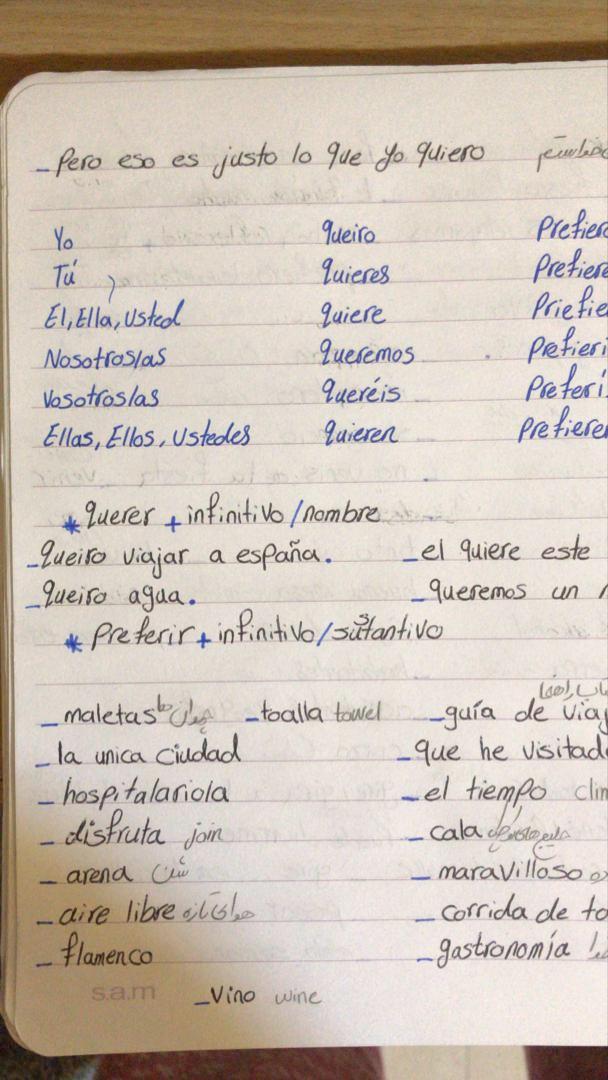 _ Pero eso es justo lo que yo quiero
Yo queiro Prefier
Tú quieres Prefiere
El, Ella, Usted quiere Priefie
Nosotros/as queremos Prefieri
Vosotros/as queréis Preferí
Ellas, Ellos, Ustedes quieren Prefieren
* querer + infinitivo/nombre
_ queiro viajar a españa. _ el quiere este
_ queiro agua. _ queremos un
* Preferir + infinitivo/sutantivo
_ maletas _ toalla towel _ guía de viaj
_ la unica ciudad _ que he visitad
_ hospitalariola _ el tiempo clim
_ disfruta join _ cala
_ arena شن _ maravilloso
_ aire libre هوای تازه _ corrida de to
_ flamenco _ gastronomía
s.a.m _ Vino wine